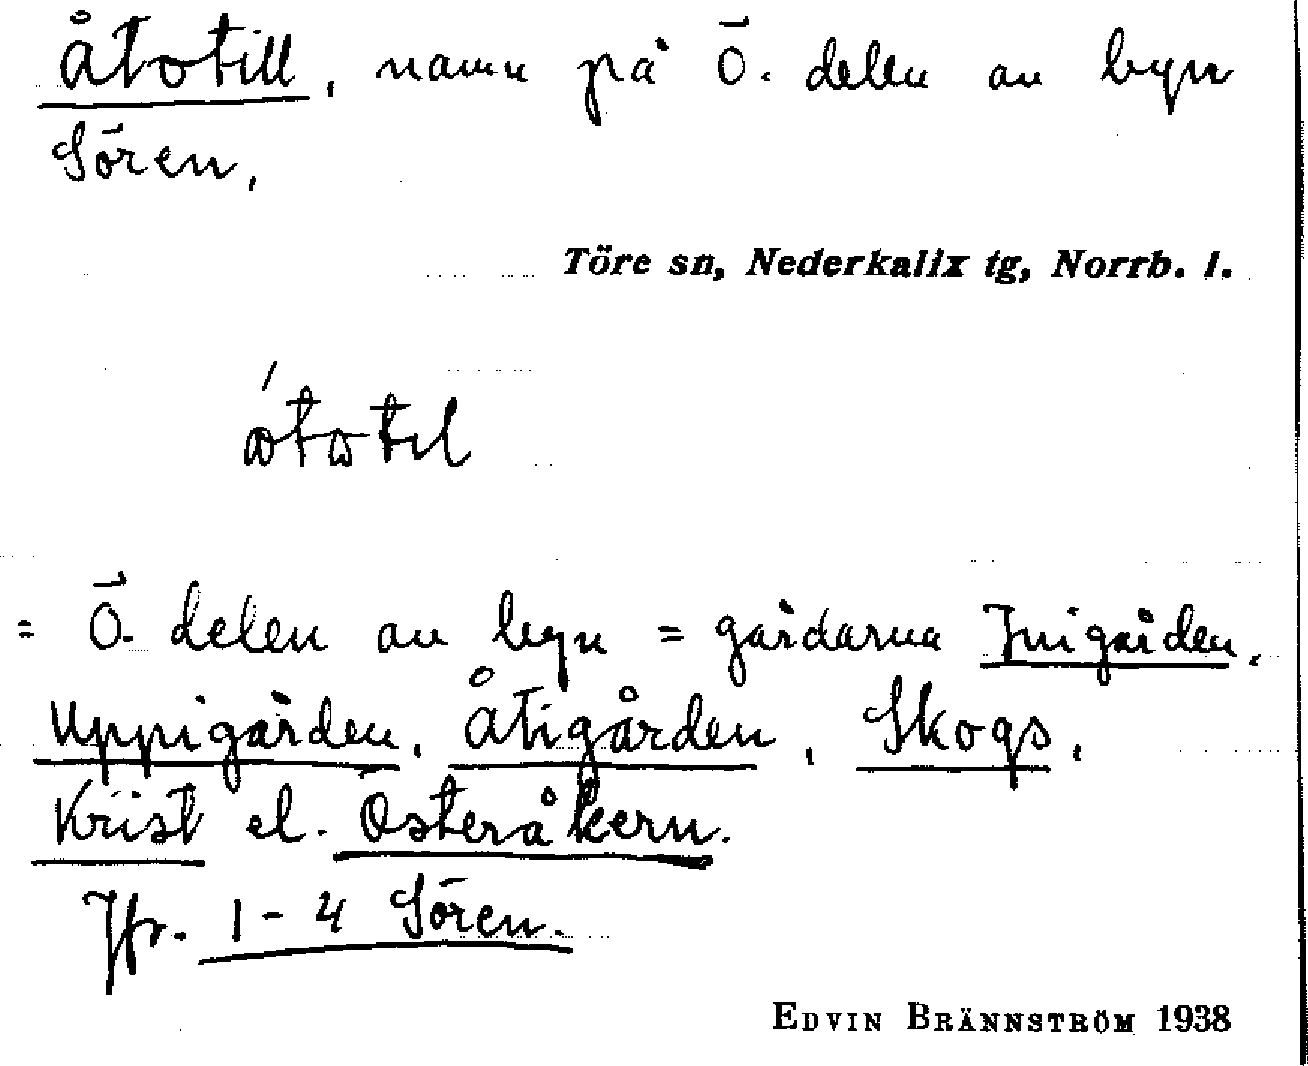 åtotill, namn på Ö. delen av byn
Sören,
Töre sn, Nederkalix tg, Norrb. l.
= Ö. delen av byn = gårdarna Inigården,
Uppigården, Åtigården, Skogs,
Krist el. Österåkern.
Jfr. 1-4 Sören.
EDVIN BRÄNNSTRÖM 1938